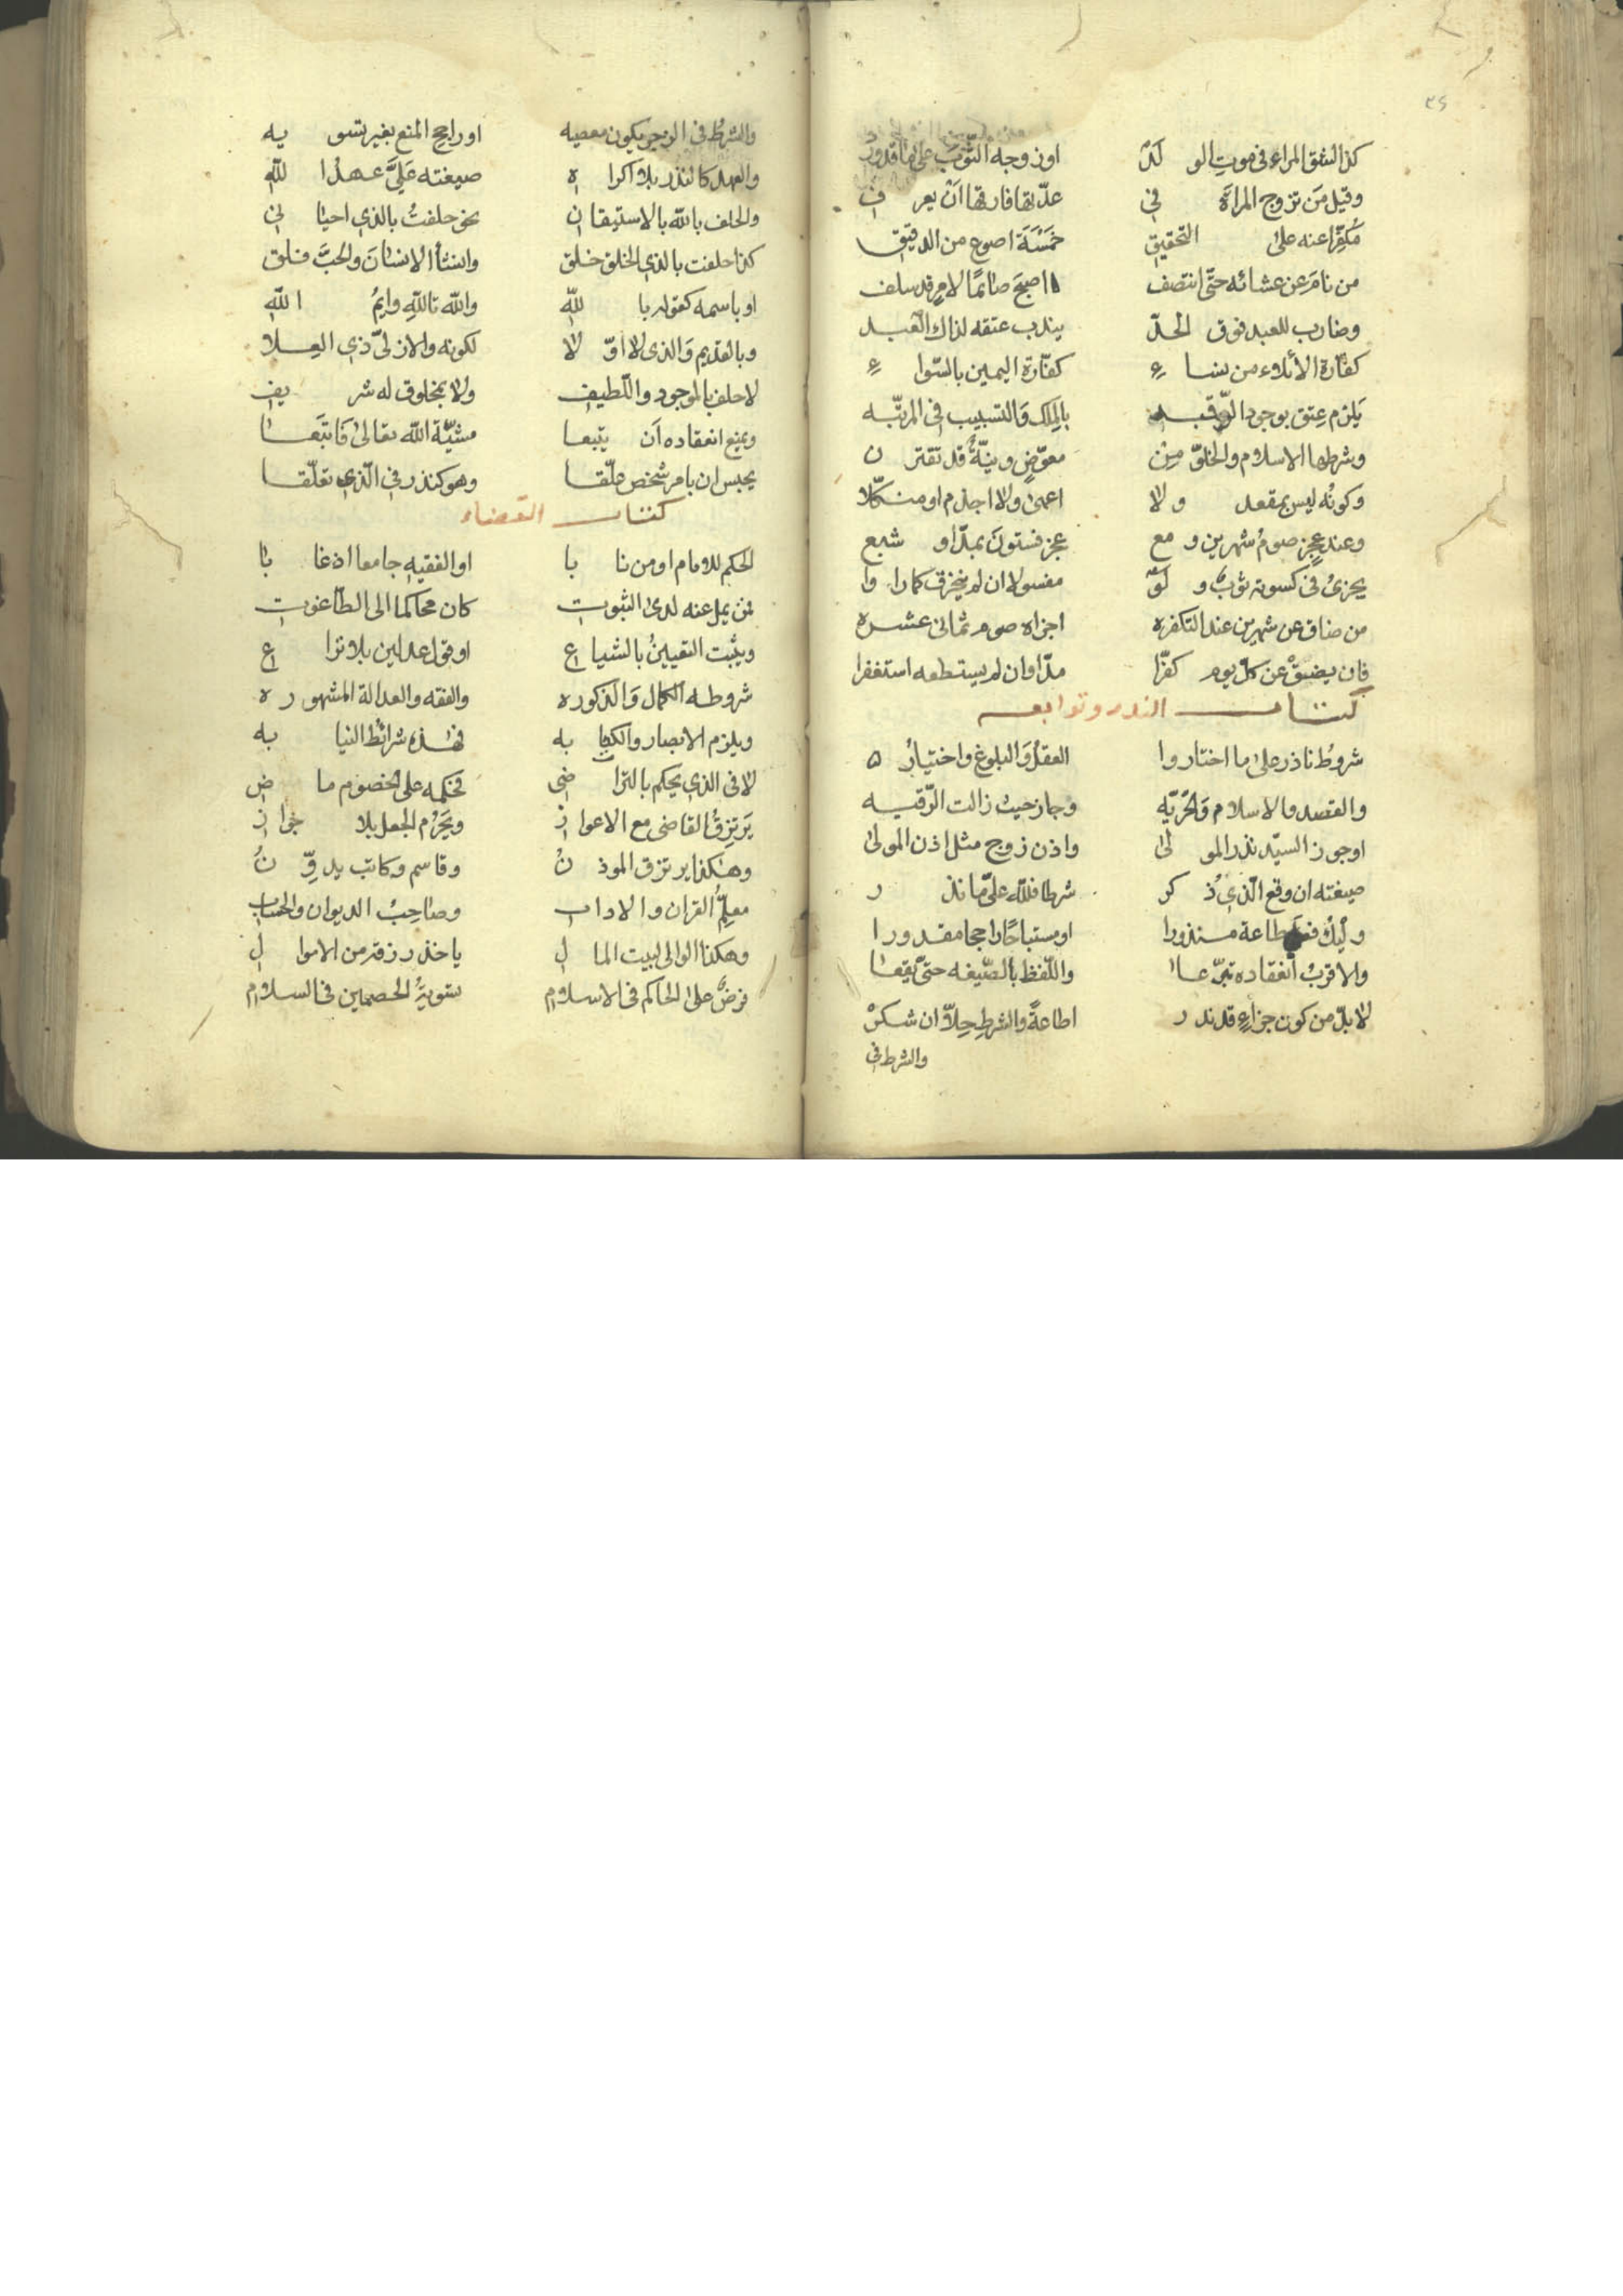 ٣٤
كذا لشق المراء في موت الولد او زوجه الثوب على ما قدور
وقيل من تزوج المراة في عدّتها فارقها ان يعرف
مكفّرا عنه على التحقيق خمسة اصوع من الدقيق
من نام عن عشائه حتّى انتصف اصبح صائمًا لامر قد سلف
وضارب للعبد فوق الحدّ يندب عتقه لذاك العبد
كفّارة الأيلاء من نساء كفّارة اليمين بالسّواء
يلزم عتق بوجود الرّقبه بالملك والتسبيب في المرتّبه
وشرطها الاسلام والخلوّ من معوّض ونيّة قد تقترن
وكونه ليس بمقعد ولا اعمى ولا اجذم او منكّلا
وعند عجز صوم شهرين ومع عجز فستون بمدّ او شبع
يجزئ في كسوته ثوب ولو مغسولا ان لم ينخرق كما راوا
من ضاق عن شهرين عند التكفره اجزاه صوم ثمانى عشره
فان يضق عن كل يوم كفّرا مدّا وان لم يستطعه استغفرا
كتاب النذر وتوابعه
شروط ناذر على ما اختاروا العقل والبلوغ واختيار
والقصد والاسلام والحرّيّه وجاز حيث زالت الرّقيه
او جوز السيّد نذر المولى واذن زوج مثل اذن المولى
صيغته ان وقع الّذي ذكر شرطا فللّه علىّ ما نذر
وليك طاعة منذورا او مستباحًا راجحا مقدورا
والاقرب انعقاده تبرّعا واللّفظ بالصّيغه حتّى يقعا
لا بدّ من كون جزاء قد نذر اطاعةً والشرط حلاّ ان شكر
والشرط في
والشرط في الزجر يكون معصيه او راجح المنع بغير تسويه
والعهد كالنذر بلا اكراه صيغته علىّ عهدا للّه
والحلف باللّه بالاستيقان نحو حلفت بالذي احيانى
كذا حلفت بالذي الخلق خلق وانشأ الانسان والحبّ فلق
او باسمه كقوله باللّه واللّه تاللّه وايم اللّه
وبالقديم والذى لا اوّلا لكونه والازلىّ ذي العلا
لا حلف بالموجود واللّطيف ولا بمخلوق له شريف
ويمنع انعقاده ان يتبعا مشيّة اللّه تعالى فاتبعا
يحبس ان بامر شخص علّقا وهو كنذر في الّذي تعلّقا
كتاب القضاء
الحكم للامام او من نابا او الفقيه جامعا اذ غابا
من يمل عنه لدى الثبوت كان محاكما الى الطاغوت
ويثبت التعيين بالشياع او قول عدلين بلا نزاع
شروطه الكمال والذكوره والفقه والعدالة المشهوره
ويلزم الابصار والكتابه فهذه شرائط النيابه
لا في الذي يحكم بالتراضى فحكمه على الخصوم ماض
يرتزق القاضى مع الاعواز ويحرم الجعل بلا جواز
وهكذا يرتزق الموذن وقاسم وكاتب يدوّن
معلّم القران والاداب وصاحب الديوان والحساب
وهكذا الوالى لبيت المال ياخذ رزقه من الاموال
فرض على الحاكم في الاسلام تسوية الخصمين في السلام